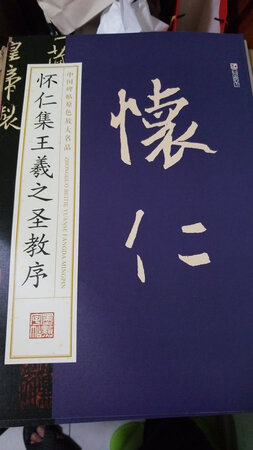 皇帝製
怀仁集王羲之圣教序
中国碑帖原色放大名品
ZHONGGUO BEITIE YUANSE FANGDA MINGPIN
懷仁